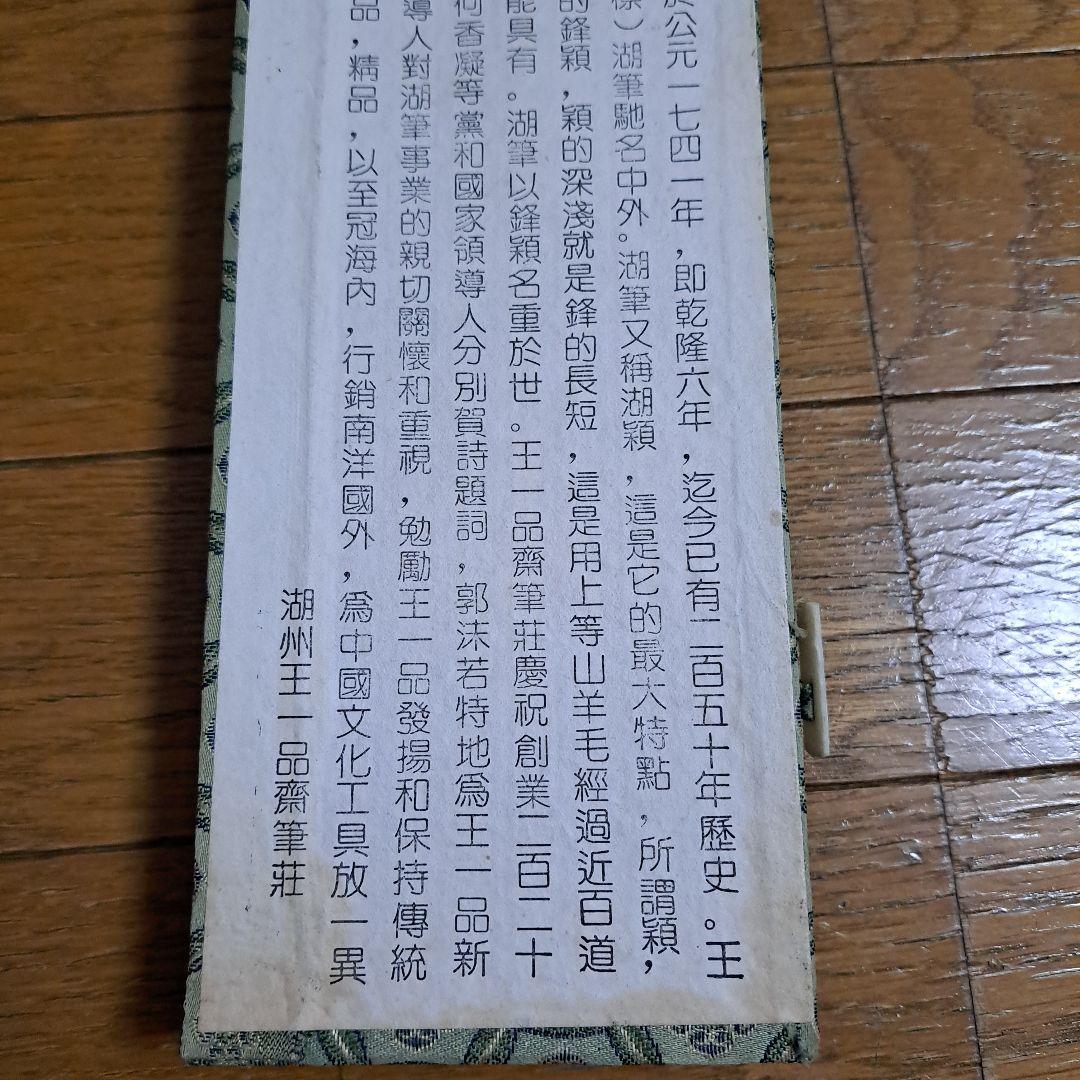 於公元一七四一年，即乾隆六年，迄今已有二百五十年歷史。王
標）湖筆馳名中外。湖筆又稱湖穎，這是它的最大特點，所謂穎，
的鋒穎，穎的深淺就是鋒的長短，這是用上等山羊毛經過近百道
能具有。湖筆以鋒穎名重於世。王一品齋筆莊慶祝創業二百二十
何香凝等黨和國家領導人分別賀詩題詞，郭沫若特地為王一品新
導人對湖筆事業的親切關懷和重視，勉勵王一品發揚和保持傳統
品，精品，以至冠海內，行銷南洋國外，為中國文化工具放一異
湖州王一品齋筆莊